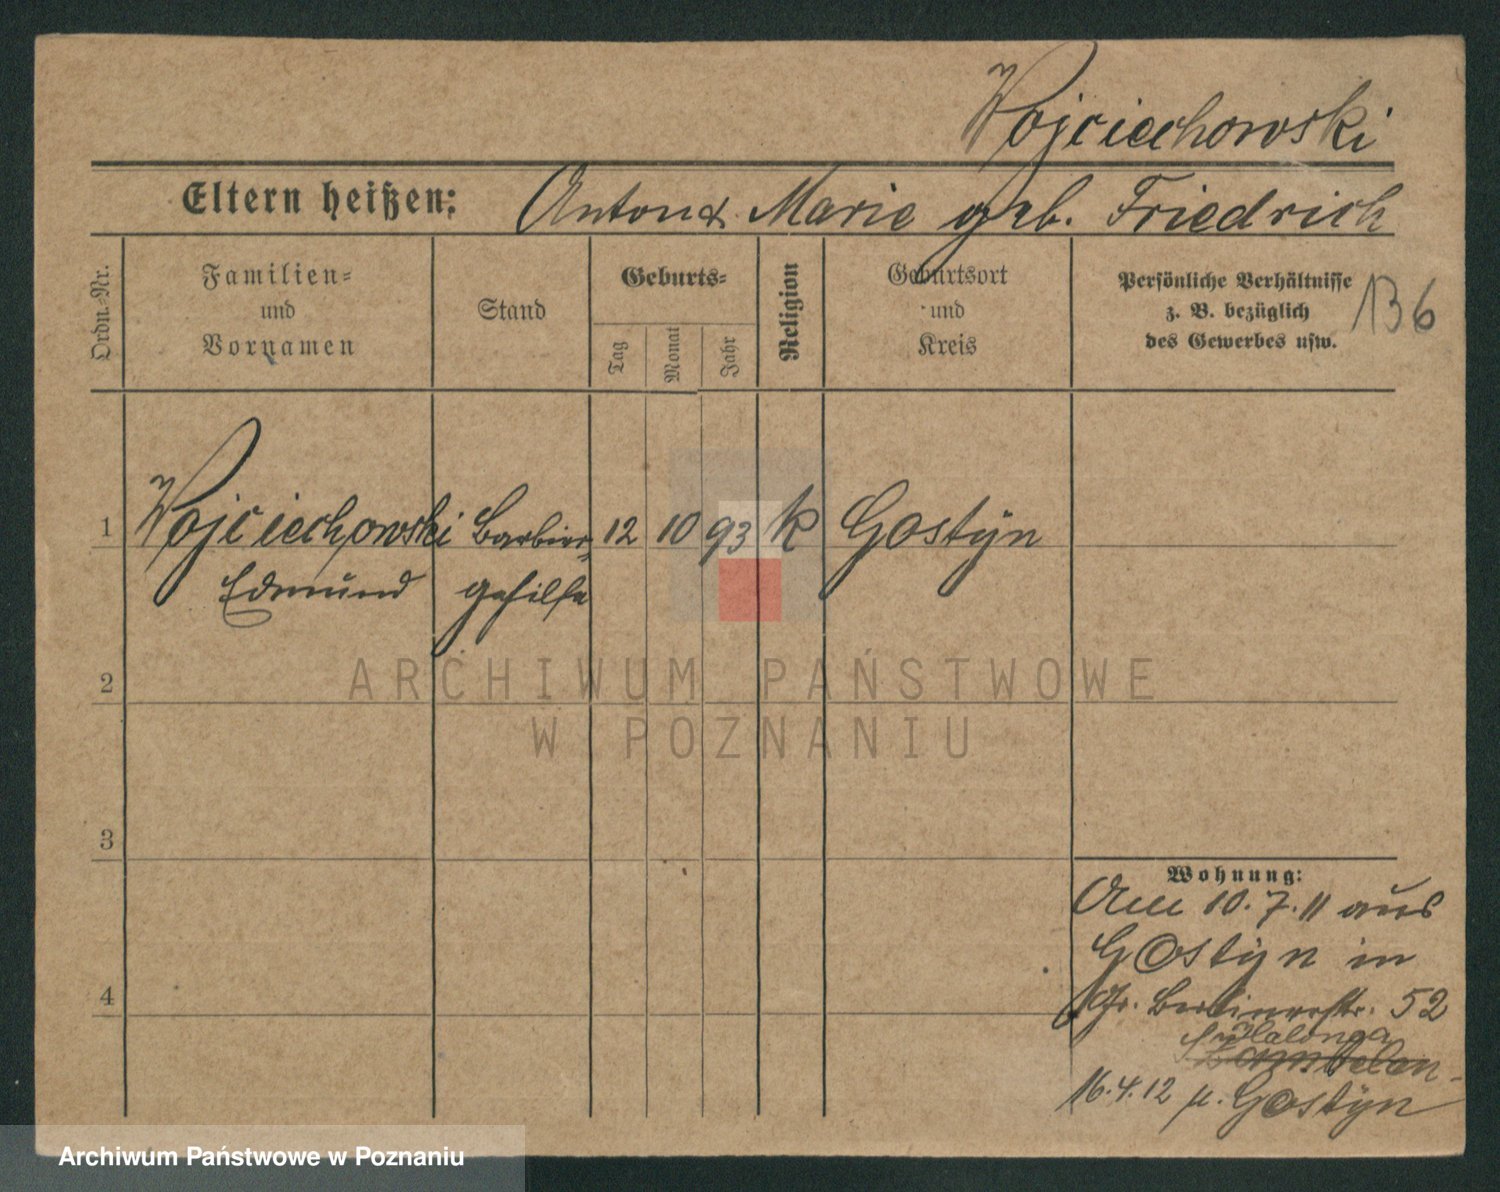 Wojciechowski
Eltern heißen: Anton & Marie geb. Friedrich
Ordn.-Nr.
Familien-
und
Vornamen
Stand
Geburts-
Tag
Monat
Jahr
Religion
Geburtsort
und
Kreis
Persönliche Verhältnisse
z. B. bezüglich
des Gewerbes usw.
136
1 Wojciechowski Barbier- 12 10 93 k Gostÿn
Edmund gehilfe
2
3
4
Wohnung:
Am 10.7.11 aus
Gostÿn in
Gr. Berlinerstr. 52
16.4.12 n. Gostÿn
ARCHIWUM PAŃSTWOWE
W POZNANIU
Archiwum Państwowe w Poznaniu